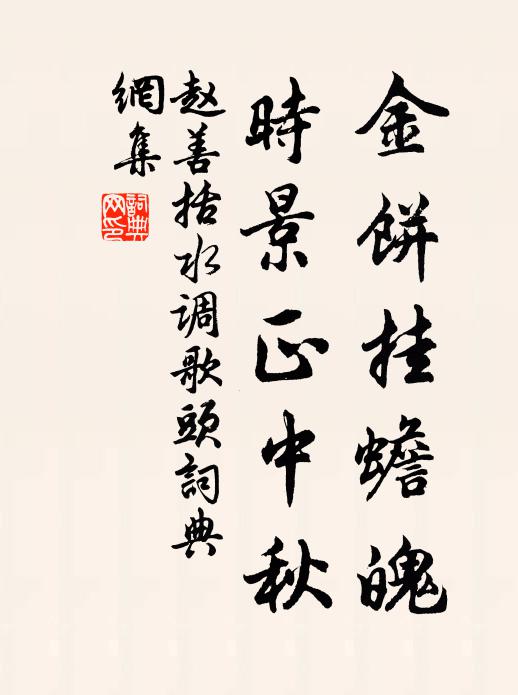 金餅挂蟾魄
時景正中秋
赵善括水调歌頭詞典
網集
詞典網印